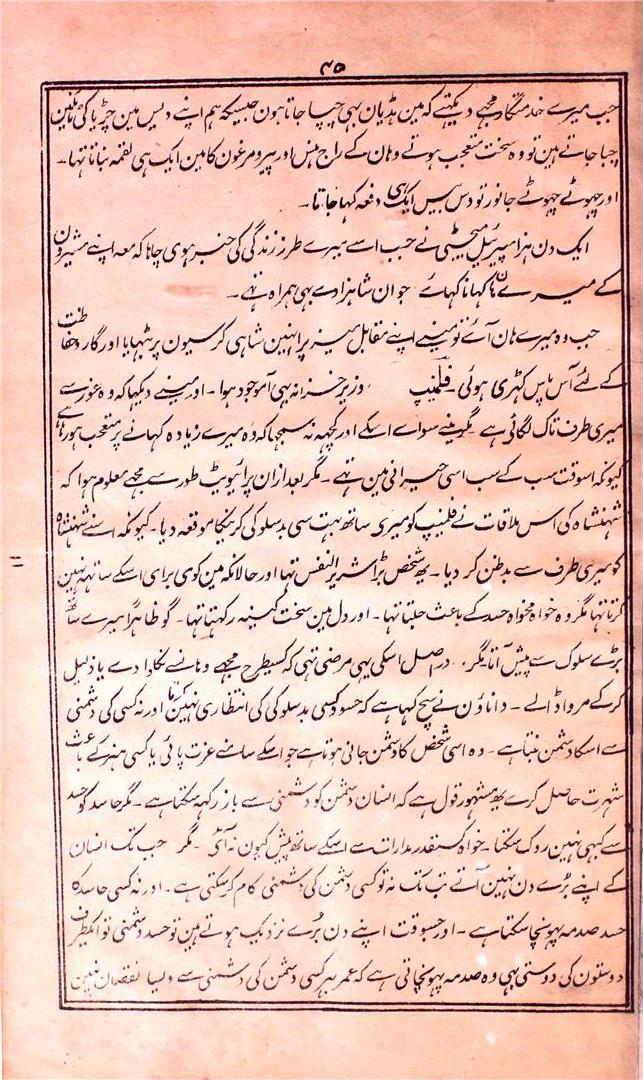 ۴۵
جب میرے خدمتگار مجھے دیکھتے کہ مین ہڈیان بہی چبا جاتا ہون جیسیکہ ہم اپنے دیس مین چڑیا کی ٹانگین
چبا جاتے ہین تو وہ سخت متعجب ہوتے وہان کے راج ہنس اور پیرو مرغون کا مین ایک ہی لقمہ بناتا تہا۔
اور چہوٹے چہوٹے جانور تو دس بیس ایک ہی دفعہ کہا جاتا۔
ایک دن ہز امپیریل میجسٹی نے جب اسے میرے طرز زندگی کی خبر ہوی چاہا کہ معہ اپنے مشیرون
کے میرے ہان کہانا کہائے جوان شاہزادے بہی ہمراہ تہے۔
جب وہ میرے ہان آئے تو مینے اپنے مقابل میز پر انہین شاہی کرسیون پر بٹہایا اور گارد حفاظت
کے لئے آس پاس کہڑی ہوئی۔ فلمنیپ وزیر خزانہ بہی آموجود ہوا۔ اور مینے دیکہا کہ وہ غور سے
میری طرف تاک لگائی ہے۔ مگر مینے سواے اسکے اور کچہہ نہ سمجہا کہ وہ میرے زیادہ کہانے پر متعجب ہو رہا ہے
کیونکہ اسوقت سب کے سب اسی حیرانی مین تہے۔ مگر بعد ازان پرائیویٹ طور سے مجہے معلوم ہوا کہ
شہنشاہ کی اس ملاقات نے فلمنیپ کو میری ساتھ بہت سی بدسلوکی کرنیکا موقعہ دیا۔ کیونکہ اسنے شہنشاہ
کو میری طرف سے بدظن کر دیا۔ یہ شخص بڑا شریر النفس تہا اور حالانکہ مین کوی برای اسکے ساتہہ نہین
کرتا تہا مگر وہ خواہ مخواہ حسد کے باعث جلتا تہا۔ اور دل مین سخت کینہ رکہتا تہا۔ گو ظاہرًا میرے ساتھ
بڑے سلوک سے پیش آتا مگر، در اصل اسکی یہی مرضی تہی کہ کسیطرح مجہے وہانسے نکلوا دے یا ذلیل
کرکے مروا ڈالے۔ داناؤن نے سچ کہا ہے کہ حسود کسی بدسلوکی کی انتظاری نہین کرتا اور نہ کسی کی دشمنی
سے اسکا دشمن بنتا ہے۔ وہ اسی شخص کا دشمن جانی ہوتا ہے جو اسکے سامنے عزت پائی یا کسی ہنر کے باعث
شہرت حاصل کرے یہ مشہور قول ہے کہ انسان دشمن کو دشمنی سے باز رکہہ سکتا ہے۔ مگر حاسد کو حسد
سے کبہی نہین روک سکتا۔ خواہ کسقدر مدارات سے اسکے ساتھ پیش کیون نہ آئی۔ مگر جب تک انسان
کے اپنے بڑے دن نہین آتے تب تک نہ تو کسی دشمن کی دشمنی کام کر سکتی ہے۔ اور نہ کسی حاسد کا
حسد صدمہ پہونچا سکتا ہے۔ اور جسوقت اپنے دن بُرے نزدیک ہوتے ہین تو حسد دشمنی تو ایکطرف
دوستون کی دوستی بہی وہ صدمہ پہونچاتی ہے کہ عمر بہر کسی دشمن کی دشمنی سے ویسا نقصان نہین